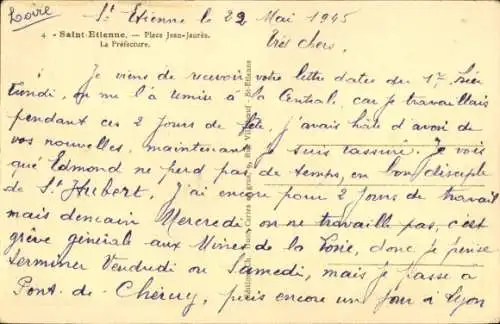 Loire
St Etienne le 22 Mai 1945
4 - Saint-Etienne. — Place Jean-Jaurès.
La Préfecture.
Très chers,
Je viens de recevoir votre lettre datée du 1er, hier
lundi, on me l'a remise à la Centrale, car je travaillais
pendant ces 2 jours de fête, j'avais hâte d'avoir de
vos nouvelles, maintenant je suis rassuré. Je vois
que Edmond ne perd pas de temps, en bon disciple
de St Hubert, J'ai encore pour 2 jours de travail
mais demain Mercredi on ne travaille pas, c'est
grève générale aux Mines de la Loire, donc je pense
terminer Vendredi ou Samedi, mais je passe à
Pont-de-Chéruy, puis encore un jour à Lyon